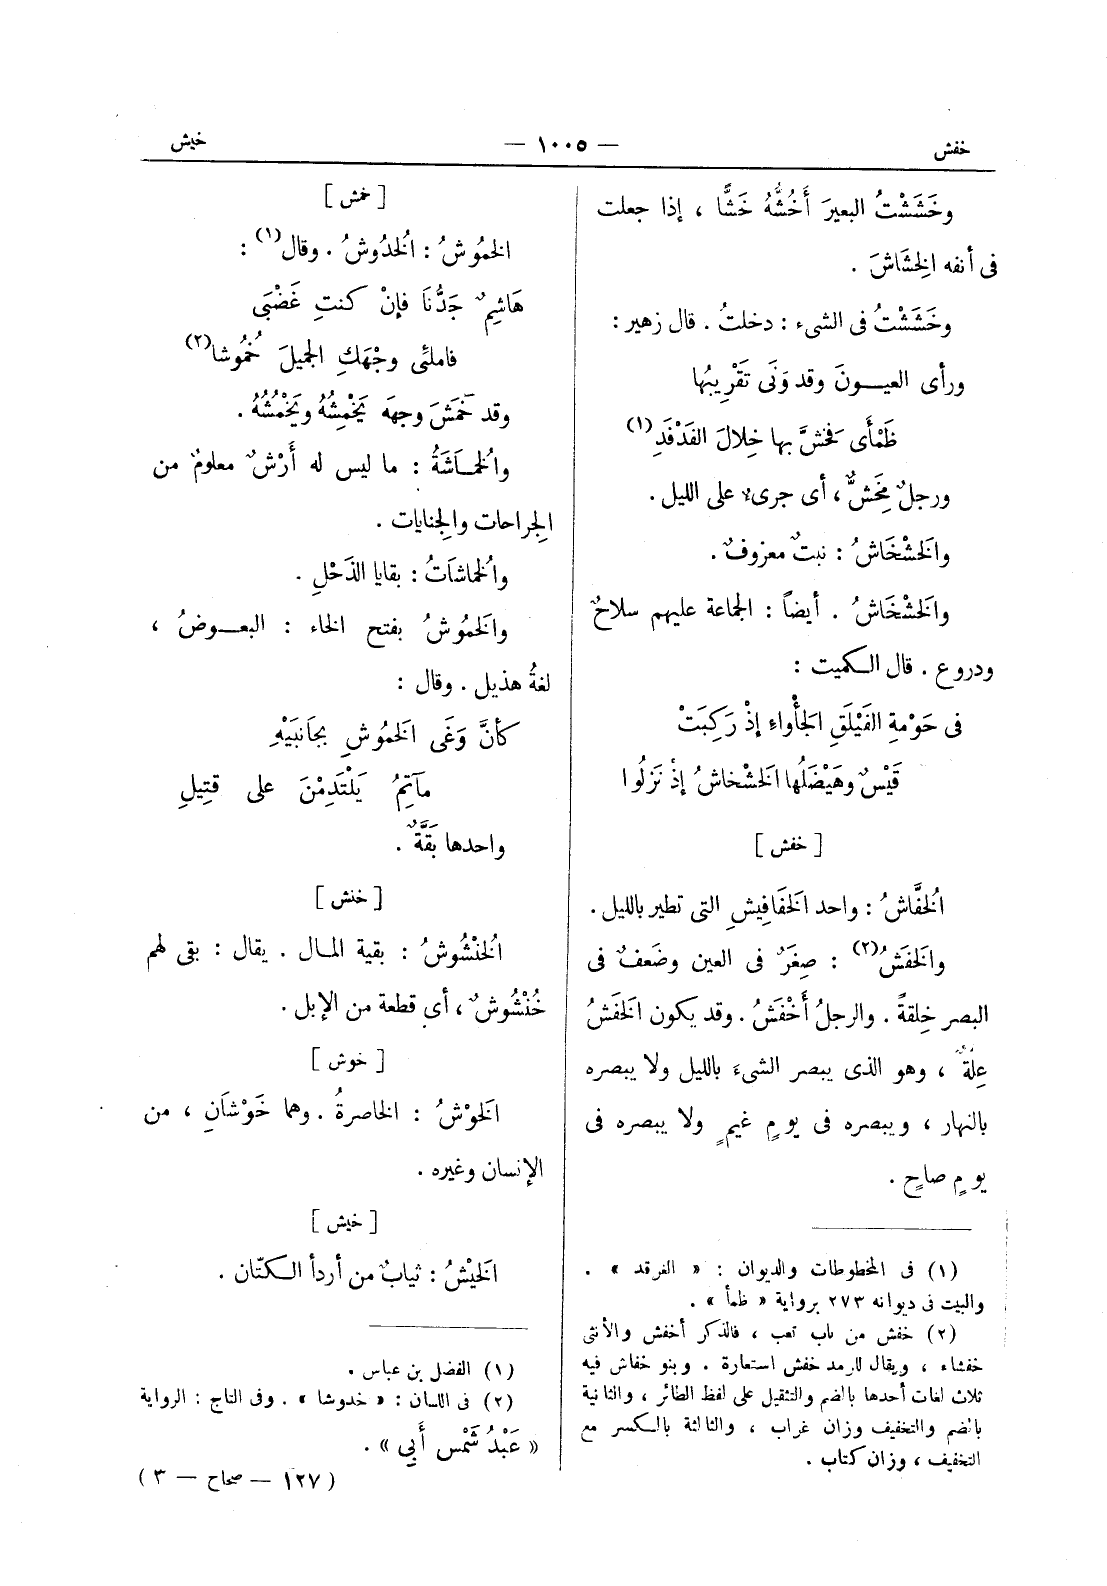 خفش — ١٠٠٥ — خيش
وخَشَشْتُ البعيرَ أَخُشُّهُ خَشًّا ، إذا جعلت
فى أنفه الخِشَاشَ .
وخَشَشْتُ فى الشىء : دخلتُ . قال زهير :
ورأى العيـــونَ وقد وَنَى تَقْرِيبُها
ظَمْأَى فَخَشَّ بها خِلالَ الفَدْفَدِ (١)
ورجلٌ مِخَشٌّ ، أى جرىء على الليل .
والخَشْخَاشُ : نبتٌ معروفٌ .
والخَشْخَاشُ . أيضاً : الجماعة عليهم سلاحٌ
ودروع . قال الكميت :
فى حَوْمةِ الفَيْلَقِ الجَأْواءِ إذْ رَكِبَتْ
قَيْسٌ وهَيْضَلُها الخَشْخاشُ إذْ نَزَلُوا
[ خفش ]
الخُفَّاشُ : واحد الخَفَافِيشِ التى تطير بالليل .
والخَفَشُ (٢) : صِغَرٌ فى العين وضَعفٌ فى
البصر خِلقةً . والرجلُ أَخْفَشُ . وقد يكون الخَفَشُ
عِلَّةً ، وهو الذى يبصر الشىءَ بالليل ولا يبصره
بالنهار ، ويبصره فى يومِ غيمٍ ولا يبصره فى
يومٍ صاحٍ .
(١) فى المخطوطات والديوان : « الفرقد » .
والبيت فى ديوانه ٢٧٣ برواية « ظمأ » .
(٢) خفش من باب تعب ، فالذكر أخفش والأنثى
خفشاء ، ويقال للرمد خفش استعارة . وبنو خفاش فيه
ثلاث لغات أحدها بالضم والتثقيل على لفظ الطائر ، والثانية
بالضم والتخفيف وزان غراب ، والثالثة بالكسر مع
التخفيف ، وزان كتاب .
[ خمش ]
الخُمُوشُ : الخُدُوشُ . وقال (١) :
هَاشِمٌ جَدُّنَا فإنْ كنتِ غَضْبَى
فاملئى وجْهَكِ الجميلَ خُمُوشا (٢)
وقد خَمَشَ وجهَه يَخْمِشُهُ ويَخْمُشُهُ .
والخُمَـاشَةُ : ما ليس له أَرْشٌ معلومٌ من
الجِراحات والجنايات .
والخُماشاتُ : بقايا الذَحْلِ .
والخَمُوشُ بفتح الخاء : البعــوضُ ،
لغةُ هذيل . وقال :
كأنَّ وَغَى الخَمُوشِ بجَانبَيْهِ
مآتِمُ يَلْتَدِمْنَ على قتِيلِ
واحدها بَقَّةٌ .
[ خنش ]
الخُنْشُوشُ : بقية المال . يقال : بقى لهم
خُنْشُوشٌ ، أى قطعة من الإبل .
[ خوش ]
الخَوْشُ : الخاصرةُ . وهما خَوْشَانِ ، من
الإنسان وغيره .
[ خيش ]
الخَيْشُ : ثيابٌ من أردأ الكتّان .
(١) الفضل بن عباس .
(٢) فى اللسان : « خدوشا » . وفى التاج : الرواية
« عَبْدُ شَمْس أَبِي » .
( ١٢٧ — صحاح — ٣ )